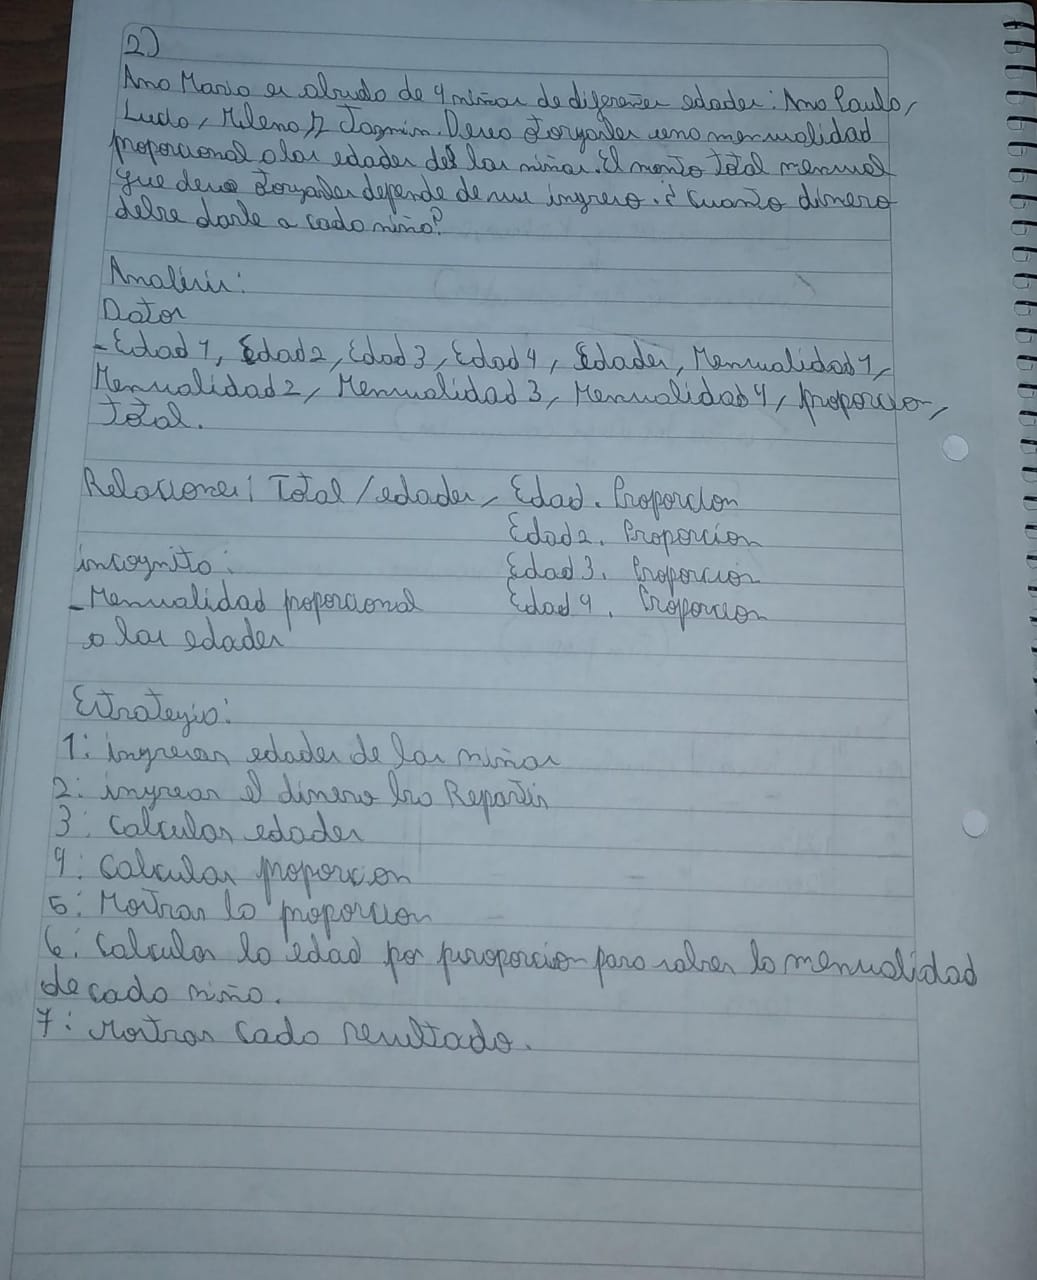 2)
Ana Maria es abuela de 4 niñas de diferentes edades: Ana Paula,
Lucla, Milena y Jazmin. Desea otorgarles una mensualidad
proporcional a las edades de las niñas. El monto total mensual
que desea otorgarles depende de sus ingreso. ¿Cuanto dinero
debe darle a cada niña?
Analisis:
Datos
-Edad 1, Edad 2, Edad 3, Edad 4, Edades, Mensualidad 1,
Mensualidad 2, Mensualidad 3, Mensualidad 4, proporcion,
Total.
Relaciones: Total / edades, Edad . Proporcion
Edad 2 . Proporcion
incognita: Edad 3 . Proporcion
-Mensualidad poporcional Edad 4 . Proporcion
a las edades
Estrategia:
1: ingresar edades de las niñas
2: ingresar el dinero a Repartir
3: calcular edades
4: calcular proporcion
5: Mostrar la proporcion
6: calcular la edad por proporcion para saber la mensualidad
de cada niña.
7: Mostrar cada resultado.